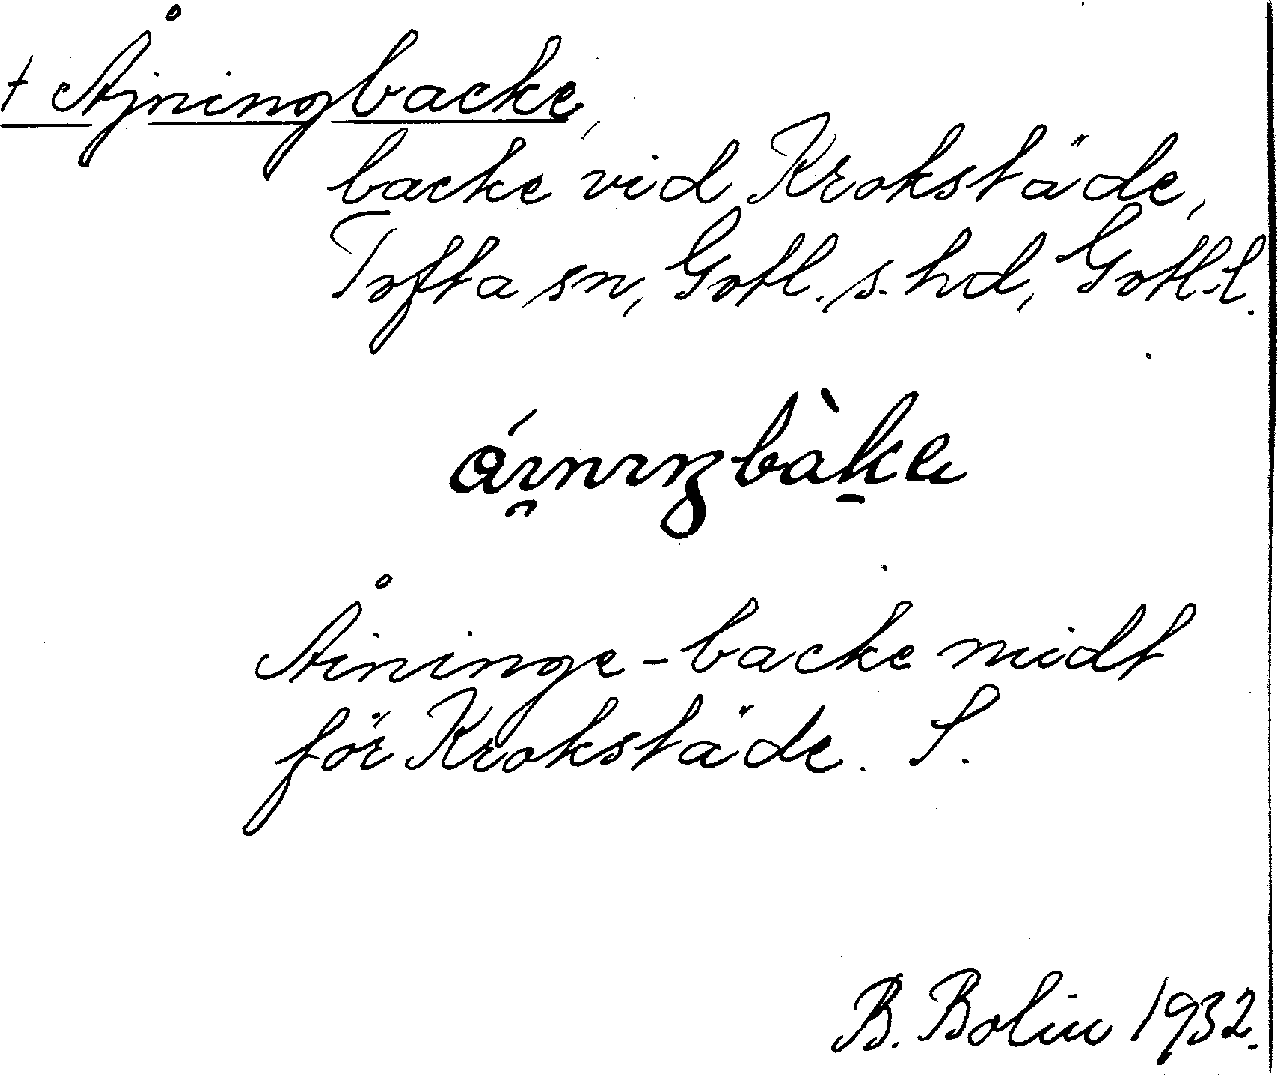 † Åjningbacke,
backe vid Krokstäde,
Tofta sn, Gotl. s. hd, Gotl. l.
Åininge-backe midt
för Krokstäde. S.
B. Bolin 1932.